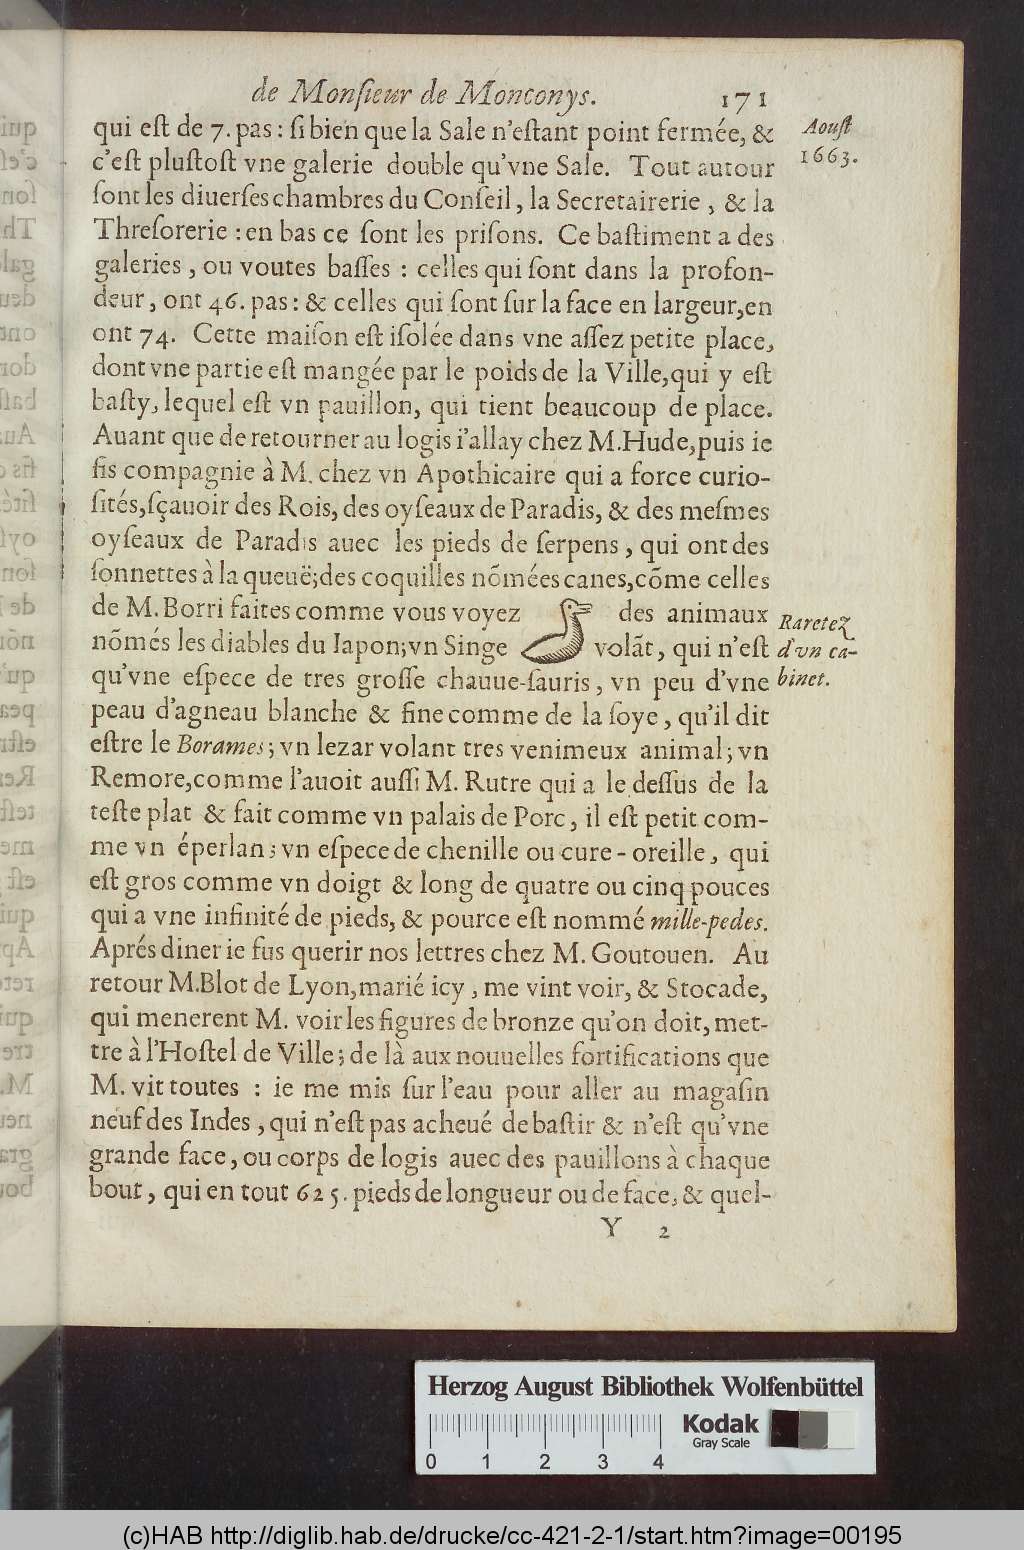 de Monſieur de Monconys. 171
Aouſt
1663.
qui eſt de 7. pas : ſi bien que la Sale n'eſtant point fermée, &
c'eſt pluſtoſt vne galerie double qu'vne Sale. Tout autour
ſont les diuerſes chambres du Conſeil, la Secretairerie, & la
Threſorerie : en bas ce ſont les priſons. Ce baſtiment a des
galeries, ou voutes baſſes : celles qui ſont dans la profon-
deur, ont 46. pas : & celles qui ſont ſur la face en largeur, en
ont 74. Cette maiſon eſt iſolée dans vne aſſez petite place,
dont vne partie eſt mangée par le poids de la Ville, qui y eſt
baſty, lequel eſt vn pauillon, qui tient beaucoup de place.
Auant que de retourner au logis i'allay chez M. Hude, puis ie
fis compagnie à M. chez vn Apothicaire qui a force curio-
ſités, ſçauoir des Rois, des oyſeaux de Paradis, & des meſmes
oyſeaux de Paradis auec les pieds de ſerpens, qui ont des
ſonnettes à la queuë; des coquilles nõmées canes, cõme celles
de M. Borri faites comme vous voyez des animaux
nõmés les diables du Iapon; vn Singe volãt, qui n'eſt
qu'vne eſpece de tres groſſe chauue-ſauris, vn peu d'vne
peau d'agneau blanche & fine comme de la ſoye, qu'il dit
eſtre le Borames; vn lezar volant tres venimeux animal; vn
Remore, comme l'auoit auſſi M. Rutre qui a le deſſus de la
teſte plat & fait comme vn palais de Porc, il eſt petit com-
me vn éperlan; vn eſpece de chenille ou cure-oreille, qui
eſt gros comme vn doigt & long de quatre ou cinq pouces
qui a vne infinité de pieds, & pource eſt nommé mille-pedes.
Aprés diner ie fus querir nos lettres chez M. Goutouen. Au
retour M. Blot de Lyon, marié icy, me vint voir, & Stocade,
qui menerent M. voir les figures de bronze qu'on doit, met-
tre à l'Hoſtel de Ville; de là aux nouuelles fortifications que
M. vit toutes : ie me mis ſur l'eau pour aller au magaſin
neuf des Indes, qui n'eſt pas acheué de baſtir & n'eſt qu'vne
grande face, ou corps de logis auec des pauillons à chaque
bout, qui en tout 625. pieds de longueur ou de face, & quel-
Raretez
d'vn ca-
binet.
Y 2
Herzog August Bibliothek Wolfenbüttel
Kodak
Gray Scale
0 1 2 3 4
(c)HAB http://diglib.hab.de/drucke/cc-421-2-1/start.htm?image=00195